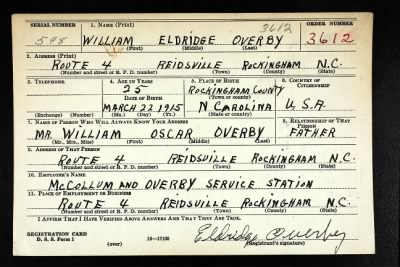 SERIAL NUMBER 1. NAME (Print) ORDER NUMBER
3612
598 WILLIAM ELDRIDGE OVERBY 3612
(First) (Middle) (Last)
2. ADDRESS (Print)
ROUTE 4 REIDSVILLE ROCKINGHAM N.C.
(Number and street or R. F. D. number) (Town) (County) (State)
3. TELEPHONE 4. AGE IN YEARS 5. PLACE OF BIRTH 6. COUNTRY OF CITIZENSHIP
25 ROCKINGHAM COUNTY
DATE OF BIRTH (Town or county)
MARCH 22 1915 N CAROLINA U.S.A.
(Exchange) (Number) (Mo.) (Day) (Yr.) (State or country)
7. NAME OF PERSON WHO WILL ALWAYS KNOW YOUR ADDRESS 8. RELATIONSHIP OF THAT PERSON
MR. WILLIAM OSCAR OVERBY FATHER
(Mr., Mrs., Miss) (First) (Middle) (Last)
9. ADDRESS OF THAT PERSON
ROUTE 4 REIDSVILLE ROCKINGHAM N.C.
(Number and street or R. F. D. number) (Town) (County) (State)
10. EMPLOYER'S NAME
MCCOLLUM AND OVERBY SERVICE STATION
11. PLACE OF EMPLOYMENT OR BUSINESS
ROUTE 4 REIDSVILLE ROCKINGHAM N.C.
(Number and street or R. F. D. number) (Town) (County) (State)
I AFFIRM THAT I HAVE VERIFIED ABOVE ANSWERS AND THAT THEY ARE TRUE.
REGISTRATION CARD Eldridge Overby
D. S. S. Form 1 (over) 16-17105 (Registrant's signature)